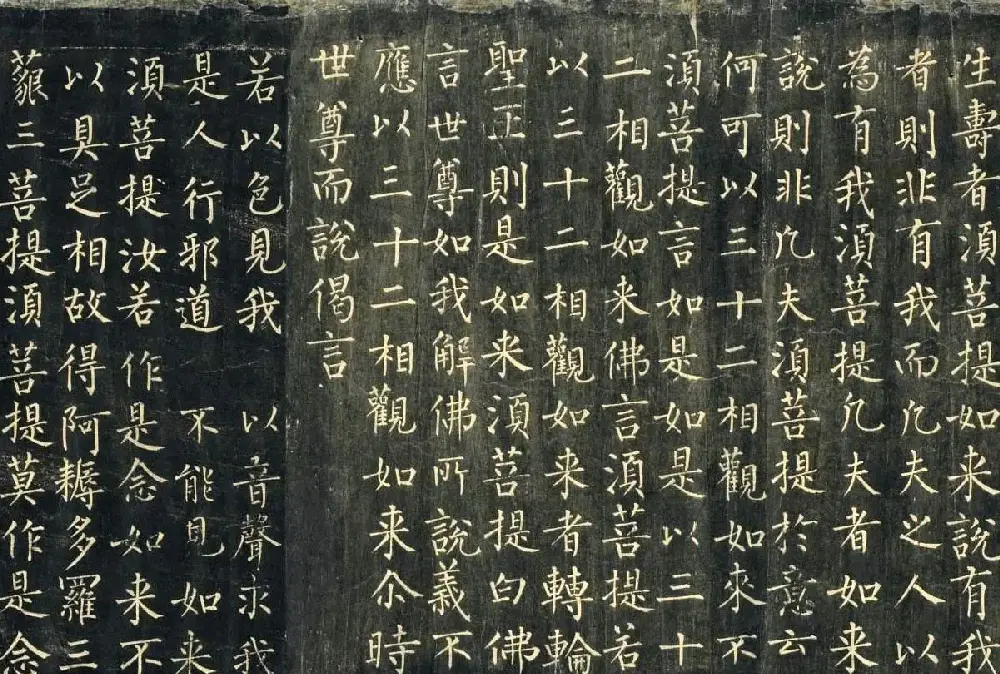 生壽者須菩提如来說有我
者則非有我而凡夫之人以
為有我須菩提凡夫者如来
說則非凡夫須菩提於意云
何可以三十二相觀如來不
須菩提言如是如是以三十
二相觀如来佛言須菩提若
以三十二相觀如来者轉輪
聖王則是如来須菩提白佛
言世尊如我解佛所說義不
應以三十二相觀如来尒時
世尊而說偈言
若以色見我 以音聲求我
是人行邪道 不能見如来
須菩提汝若作是念如来不
以具足相故得阿耨多羅三
藐三菩提須菩提莫作是念